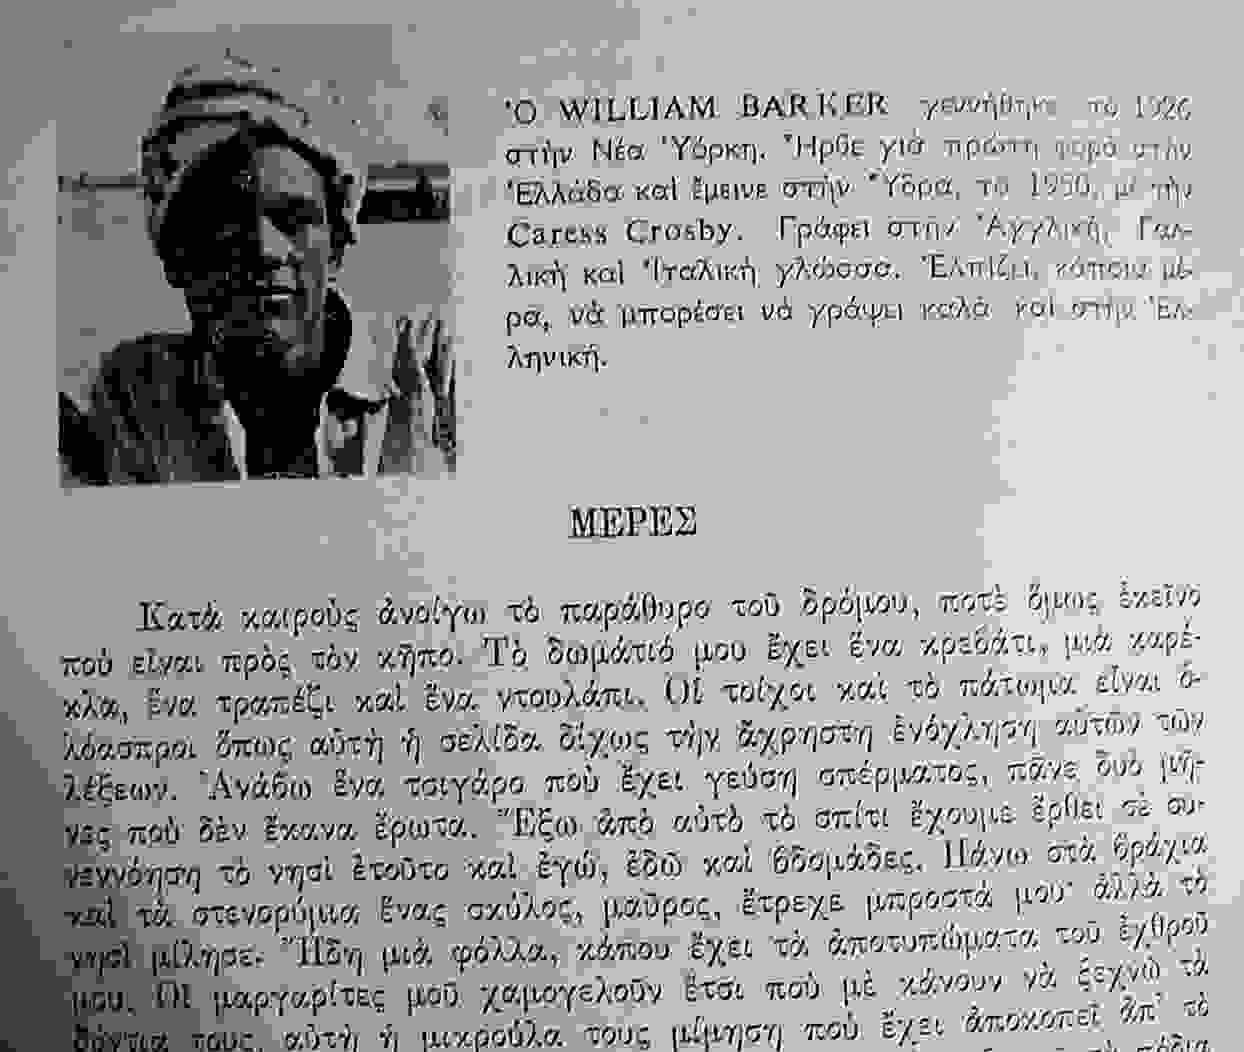 Ὁ WILLIAM BARKER γεννήθηκε τὸ 1926
στὴν Νέα Ὑόρκη. Ἦρθε γιὰ πρώτη φορὰ στὴν
Ἑλλάδα καὶ ἔμεινε στὴν Ὕδρα, τὸ 1950, μὲ τὴν
Caress Crosby. Γράφει στὴν Ἀγγλική, Γαλ-
λικὴ καὶ Ἰταλικὴ γλώσσα. Ἐλπίζει, κάποια μέ-
ρα, νὰ μπορέσει νὰ γράψει καλὰ καὶ στὴν Ἑλ-
ληνική.
ΜΕΡΕΣ
Κατὰ καιροὺς ἀνοίγω τὸ παράθυρο τοῦ δρόμου, ποτὲ ὅμως ἐκεῖνο
ποὺ εἶναι πρὸς τὸν κῆπο. Τὸ δωμάτιό μου ἔχει ἕνα κρεβάτι, μιὰ καρέ-
κλα, ἕνα τραπέζι καὶ ἕνα ντουλάπι. Οἱ τοίχοι καὶ τὸ πάτωμα εἶναι ὁ-
λόασπροι ὅπως αὐτὴ ἡ σελίδα δίχως τὴν ἄχρηστη ἐνόχληση αὐτῶν τῶν
λέξεων. Ἀνάβω ἕνα τσιγάρο ποὺ ἔχει γεύση σπέρματος, πᾶνε δυὸ μῆ-
νες ποὺ δὲν ἔκανα ἔρωτα. Ἔξω ἀπὸ αὐτὸ τὸ σπίτι ἔχουμε ἔρθει σὲ συ-
νεννόηση τὸ νησὶ ἐτοῦτο καὶ ἐγώ, ἐδῶ καὶ βδομάδες. Πάνω στὰ βράχια
καὶ τὰ στενορύμια ἕνας σκύλος, μαῦρος, ἔτρεχε μπροστά μου· ἀλλὰ τὸ
νησὶ μίλησε. Ἤδη μιὰ φόλλα, κάπου ἔχει τὰ ἀποτυπώματα τοῦ ἐχθροῦ
μου. Οἱ μαργαρίτες μοῦ χαμογελοῦν ἔτσι ποὺ μὲ κάνουν νὰ ξεχνῶ τὰ
δόντια τους, αὐτὴ ἡ μικρούλα τους μίμηση ποὺ ἔχει ἀποκοπεῖ ἀπ' τὸ